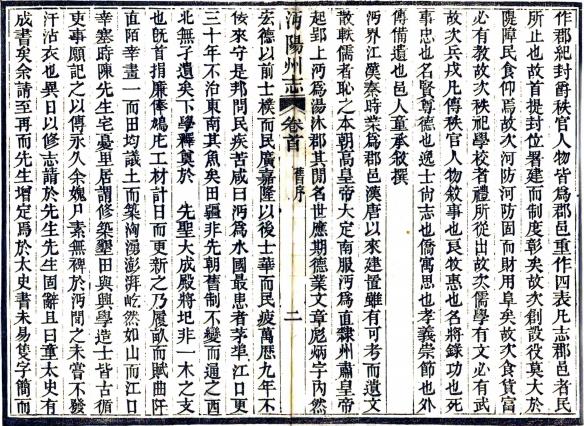 作郡紀封爵秩官人物皆爲郡邑重作四表凡志郡邑者民
所止也故首提封位署建而制度彰矣故次創設役莫大於
隄障民食仰焉故次河防河防固而財用阜矣故次食貨富
必有教故次秩祀學校者禮所從出故次儒學有文必有武
故次兵戎凡傳秩官人物敘事也良牧惠也名將錄功也死
事忠也名賢尊德也逸士尚志也僑寓思也孝義崇節也外
傳備遺也邑人童承敘撰
沔界江漢秦時業爲郡邑漢唐以來建置雖有可考而遺文
散軼儒者恥之本朝高皇帝大定南服沔爲直隸州肅皇帝
起郢上沔爲湯沐郡其聞名世應期德業文章彪炳宇內然
沔陽州志
卷首
舊序
二
宏德以前士樸而民廣嘉隆以後士華而民疲萬歷九年不
佞來守是邦問民疾苦咸曰沔爲水國最患者茅埠江口更
三十年不治東南其魚矣田疆非先朝舊制不變而逋之西
北無孑遺矣下學釋奠於 先聖大成殿將圮非一木之支
也旣首捐廉俸鳩庀工材計日而更新之乃履畝而賦曲阡
直陌幸畫一而田均議土而築洶湧澎湃屹然如山而江口
幸塞時陳先生宅憂里居謂修築墾田與興學造士皆古循
吏事願記之以傳永久余媿月素無碑於沔間之未嘗不發
汗沾衣也異日以修志請於先生先生固辭且曰童太史有
成書矣余請至再而先生增定焉於太史書未易隻字簡而